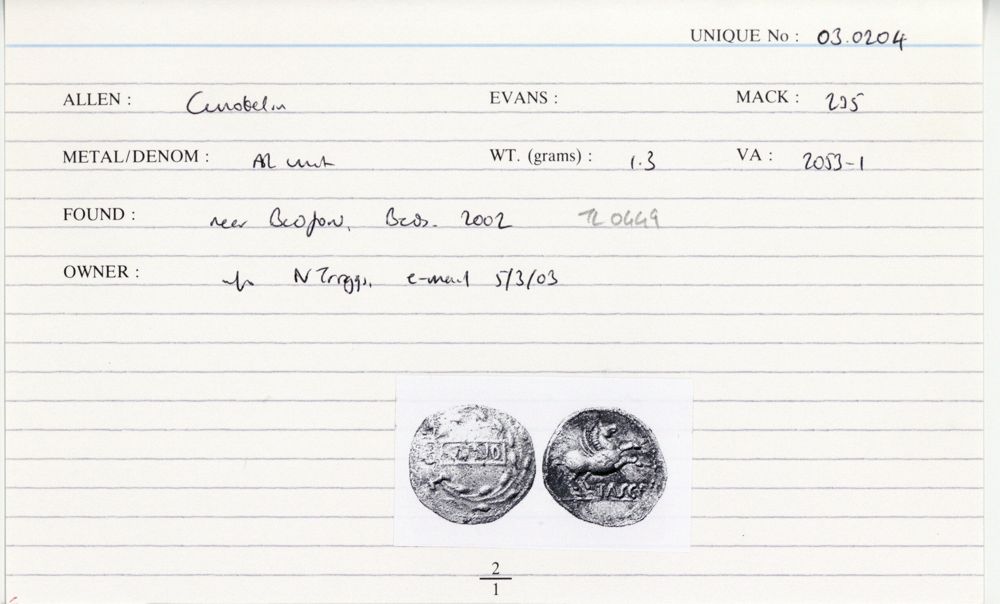 UNIQUE No : 03.0204
ALLEN : Cunobelin EVANS : MACK : 295
METAL/DENOM : AR unit WT. (grams) : 1.3 VA : 2053-1
FOUND : near Bedford, Beds. 2002 TL 0449
OWNER : N Triggs, e-mail 5/3/03
TASCI
2
1